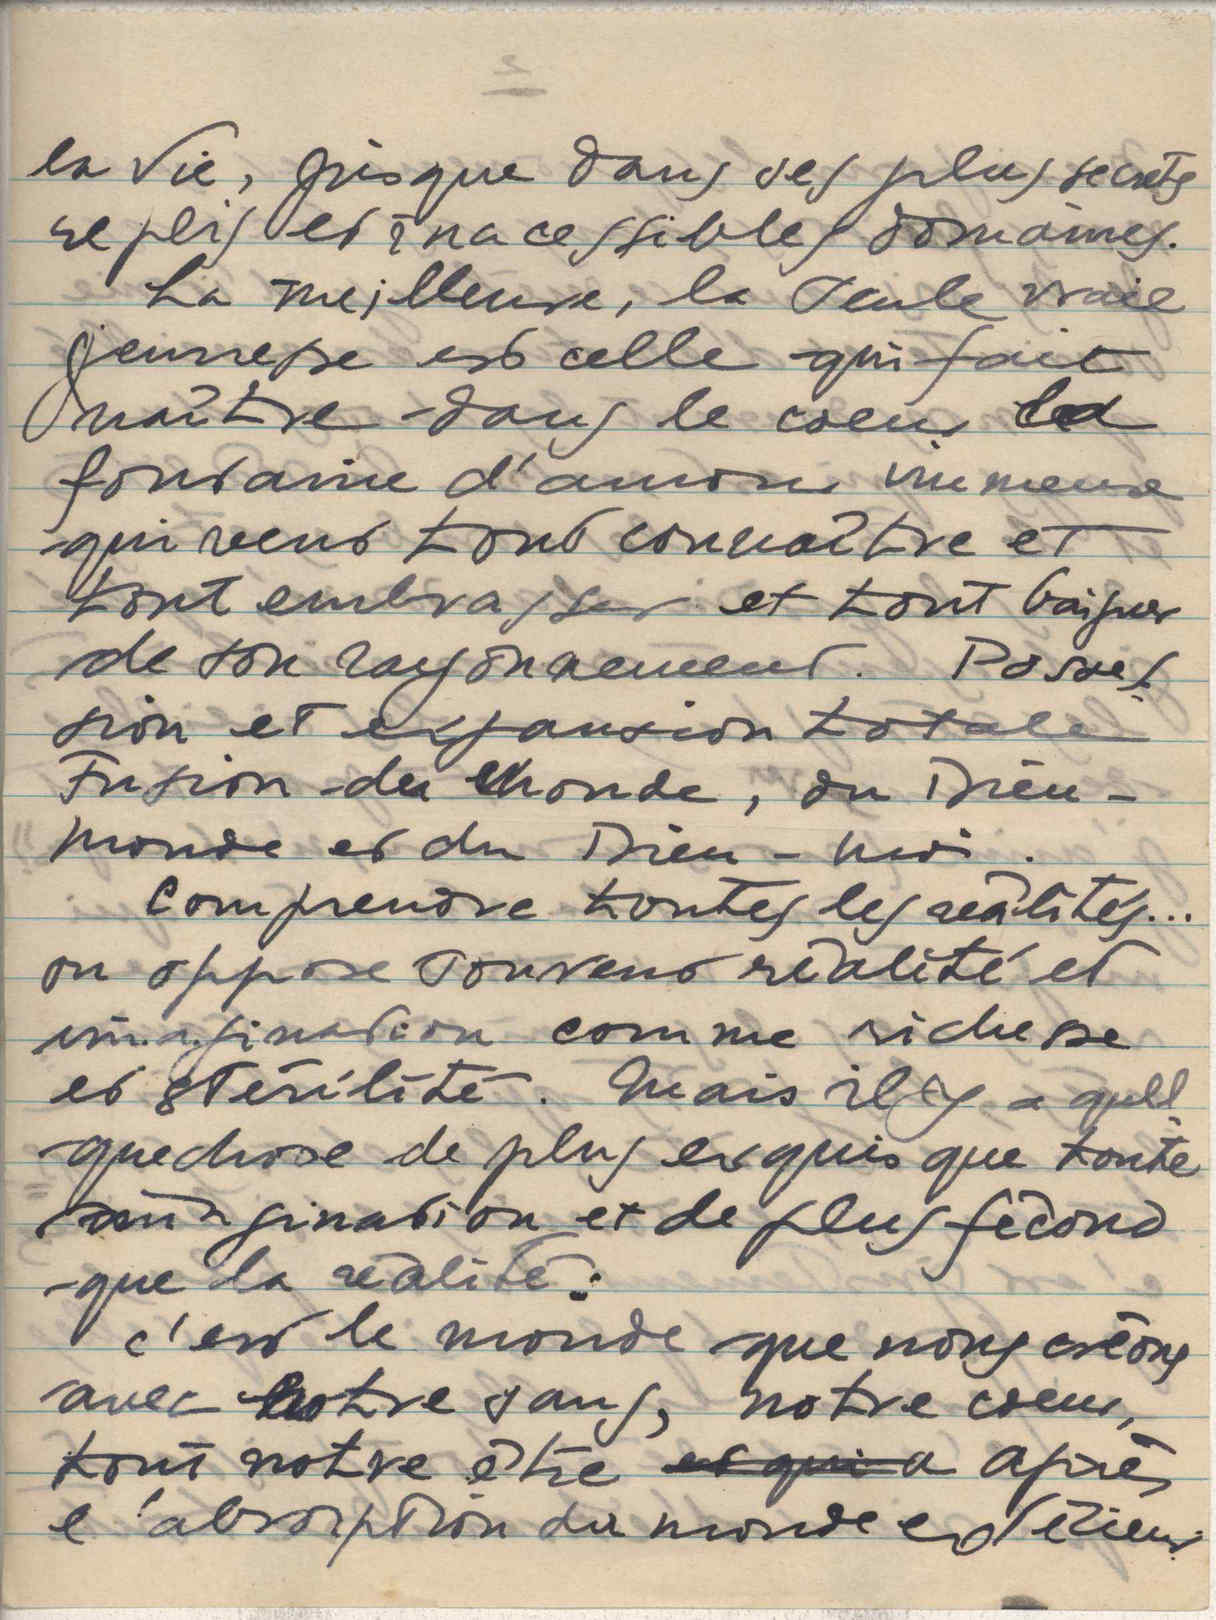 la vie, jusque dans ses plus secrets
replis et inacessibles domaines.
La meilleure, la seule vraie
jeunesse est celle qui fait
naître dans le coeur la
fontaine d'amour immense
qui veut tout connaître et
tout embrasser et tout baigner
de son rayonnement. Posses
sion et expansion totale
Fusion du monde, du Dieu-
monde et du Dieu-moi.
Comprendre toutes les réalités...
on oppose souvent réalité et
imagination comme richesse
et stérilité. Mais il y a quel
quechose de plus exquis que toute
imagination et de plus fécond
que la réalité:
c'est le monde que nous créons
avec notre sang, notre coeur,
tout notre être et qui a après
l'absorption du monde extérieur